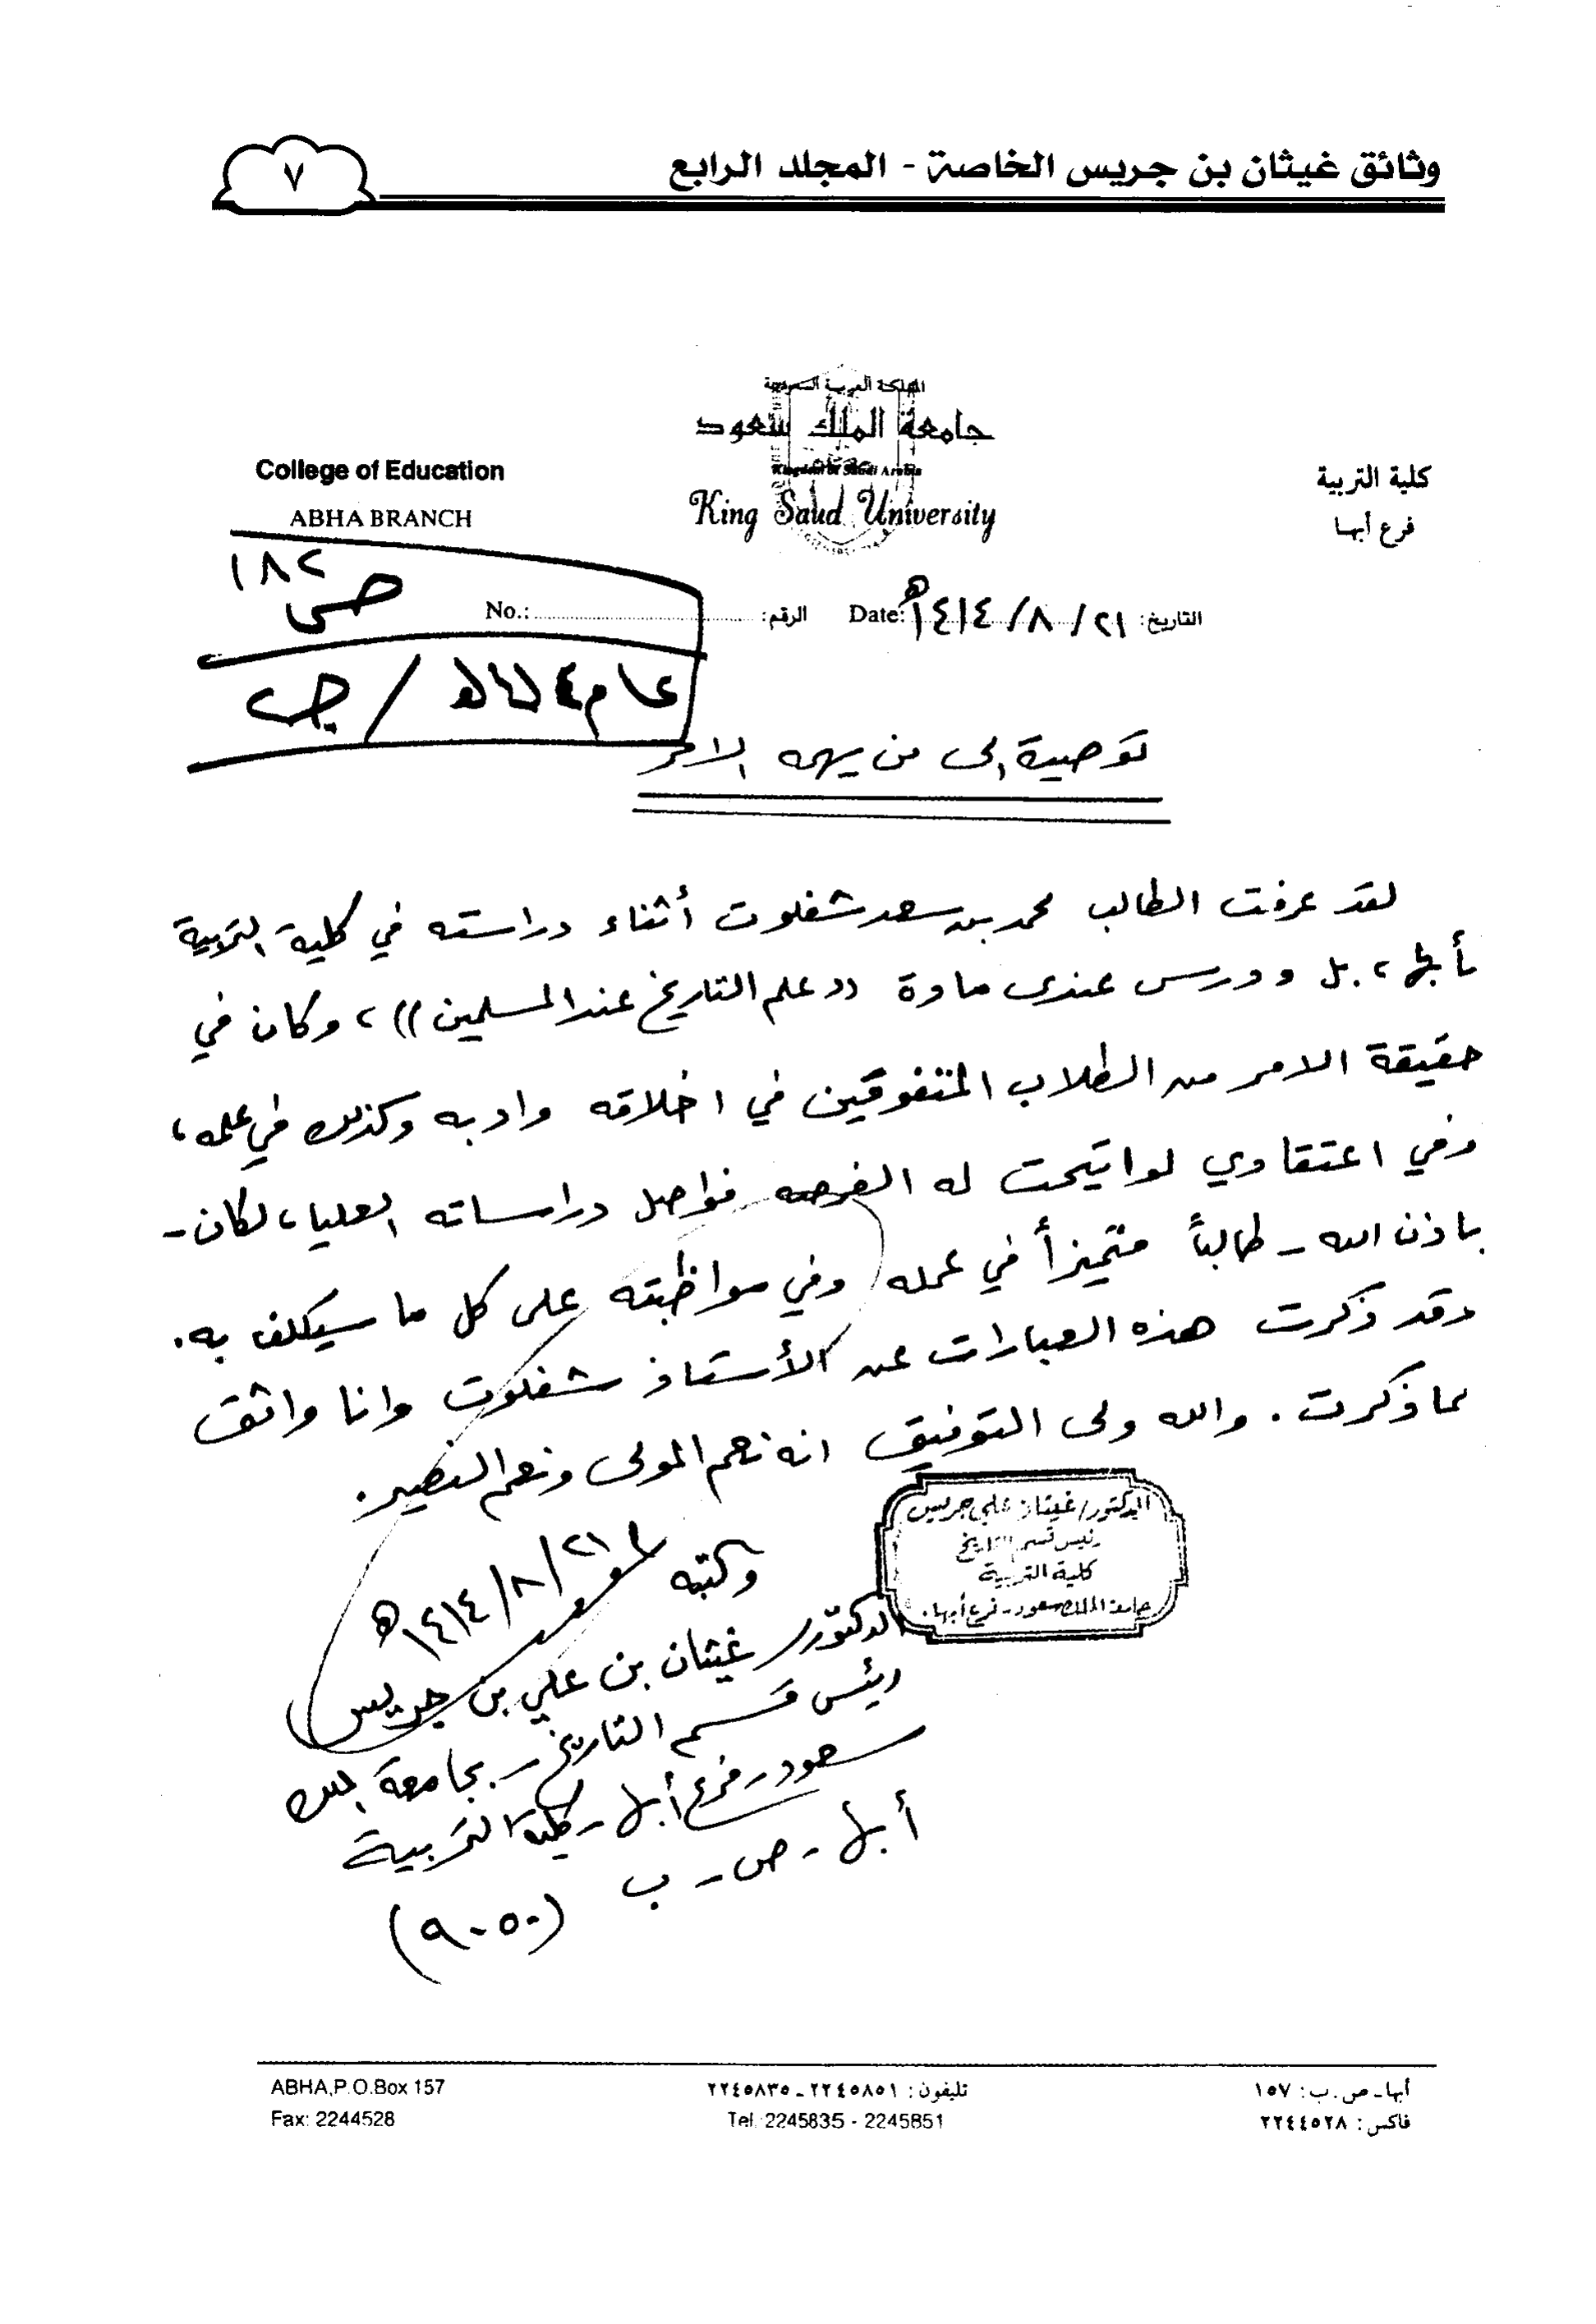 وثائق غيثان بن جريس الخاصة - المجلد الرابع
٧
المملكة العربية السعودية
جامعة الملك سعود
Kingdom of Saudi Arabia
King Saud University
كلية التربية
فرع أبها
College of Education
ABHA BRANCH
التاريخ: ٢١/ ٨/ ١٤١٤هـ Date:
الرقم: No.:
١٨٢
عام / ج٢
توصية الى من يهمه الامر
لقد عرفت الطالب محمد بن سعد شفلوت أثناء دراسته في كلية التربية
بأبها، بل ودرس عندى مادة ((علم التاريخ عند المسلمين))، وكان في
حقيقة الامر من الطلاب المتفوقين في اخلاقه وادبه وكذلك في علمه،
وفي اعتقادي لو اتيحت له الفرصه فواصل دراساته العليا، لكان -
باذن الله - طالباً متميزاً في عمله وفي مواظبته على كل ما سيكلف به.
وقد ذكرت هذه العبارات عن الأستاذ شفلوت وانا واثق
لما ذكرت. والله ولى التوفيق انه نعم المولى ونعم النصير.
الدكتور/ غيثان علي جريس
رئيس قسم التاريخ
كلية التربية
جامعة الملك سعود - فرع أبها.
وكتبه
٢١/ ٨/ ١٤١٤هـ
الدكتور/ غيثان بن علي بن جريس
رئيس قسم التاريخ - بجامعة الملك
سعود - فرع أبها - كلية التربية
أبها - ص - ب
(٩٠٥٠)
أبها - ص.ب: ١٥٧
فاكس: ٢٢٤٤٥٢٨
تليفون: ٢٢٤٥٨٥١ - ٢٢٤٥٨٣٥
Tel. 2245835 - 2245851
ABHA,P.O.Box 157
Fax: 2244528